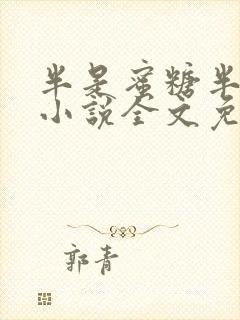 半是蜜糖半
小说全文免
郭青